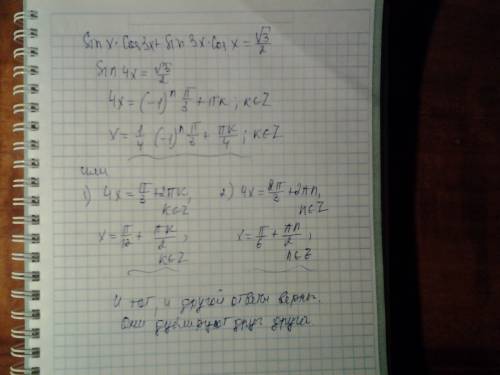 Sin x · Cos 3x + Sin 3x · Cos x = √3/2
Sin 4x = √3/2
4x = (-1)ⁿ π/3 + πk ; k∈Z
x = 1/4 (-1)ⁿ π/3 + πk/4 ; k∈Z
или
1) 4x = π/3 + 2πk, k∈Z
x = π/12 + πk/2 ; k∈Z
2) 4x = 2π/3 + 2πn, n∈Z
x = π/6 + πn/2 , n∈Z
И тот, и другой ответы верны.
Они дублируют друг друга